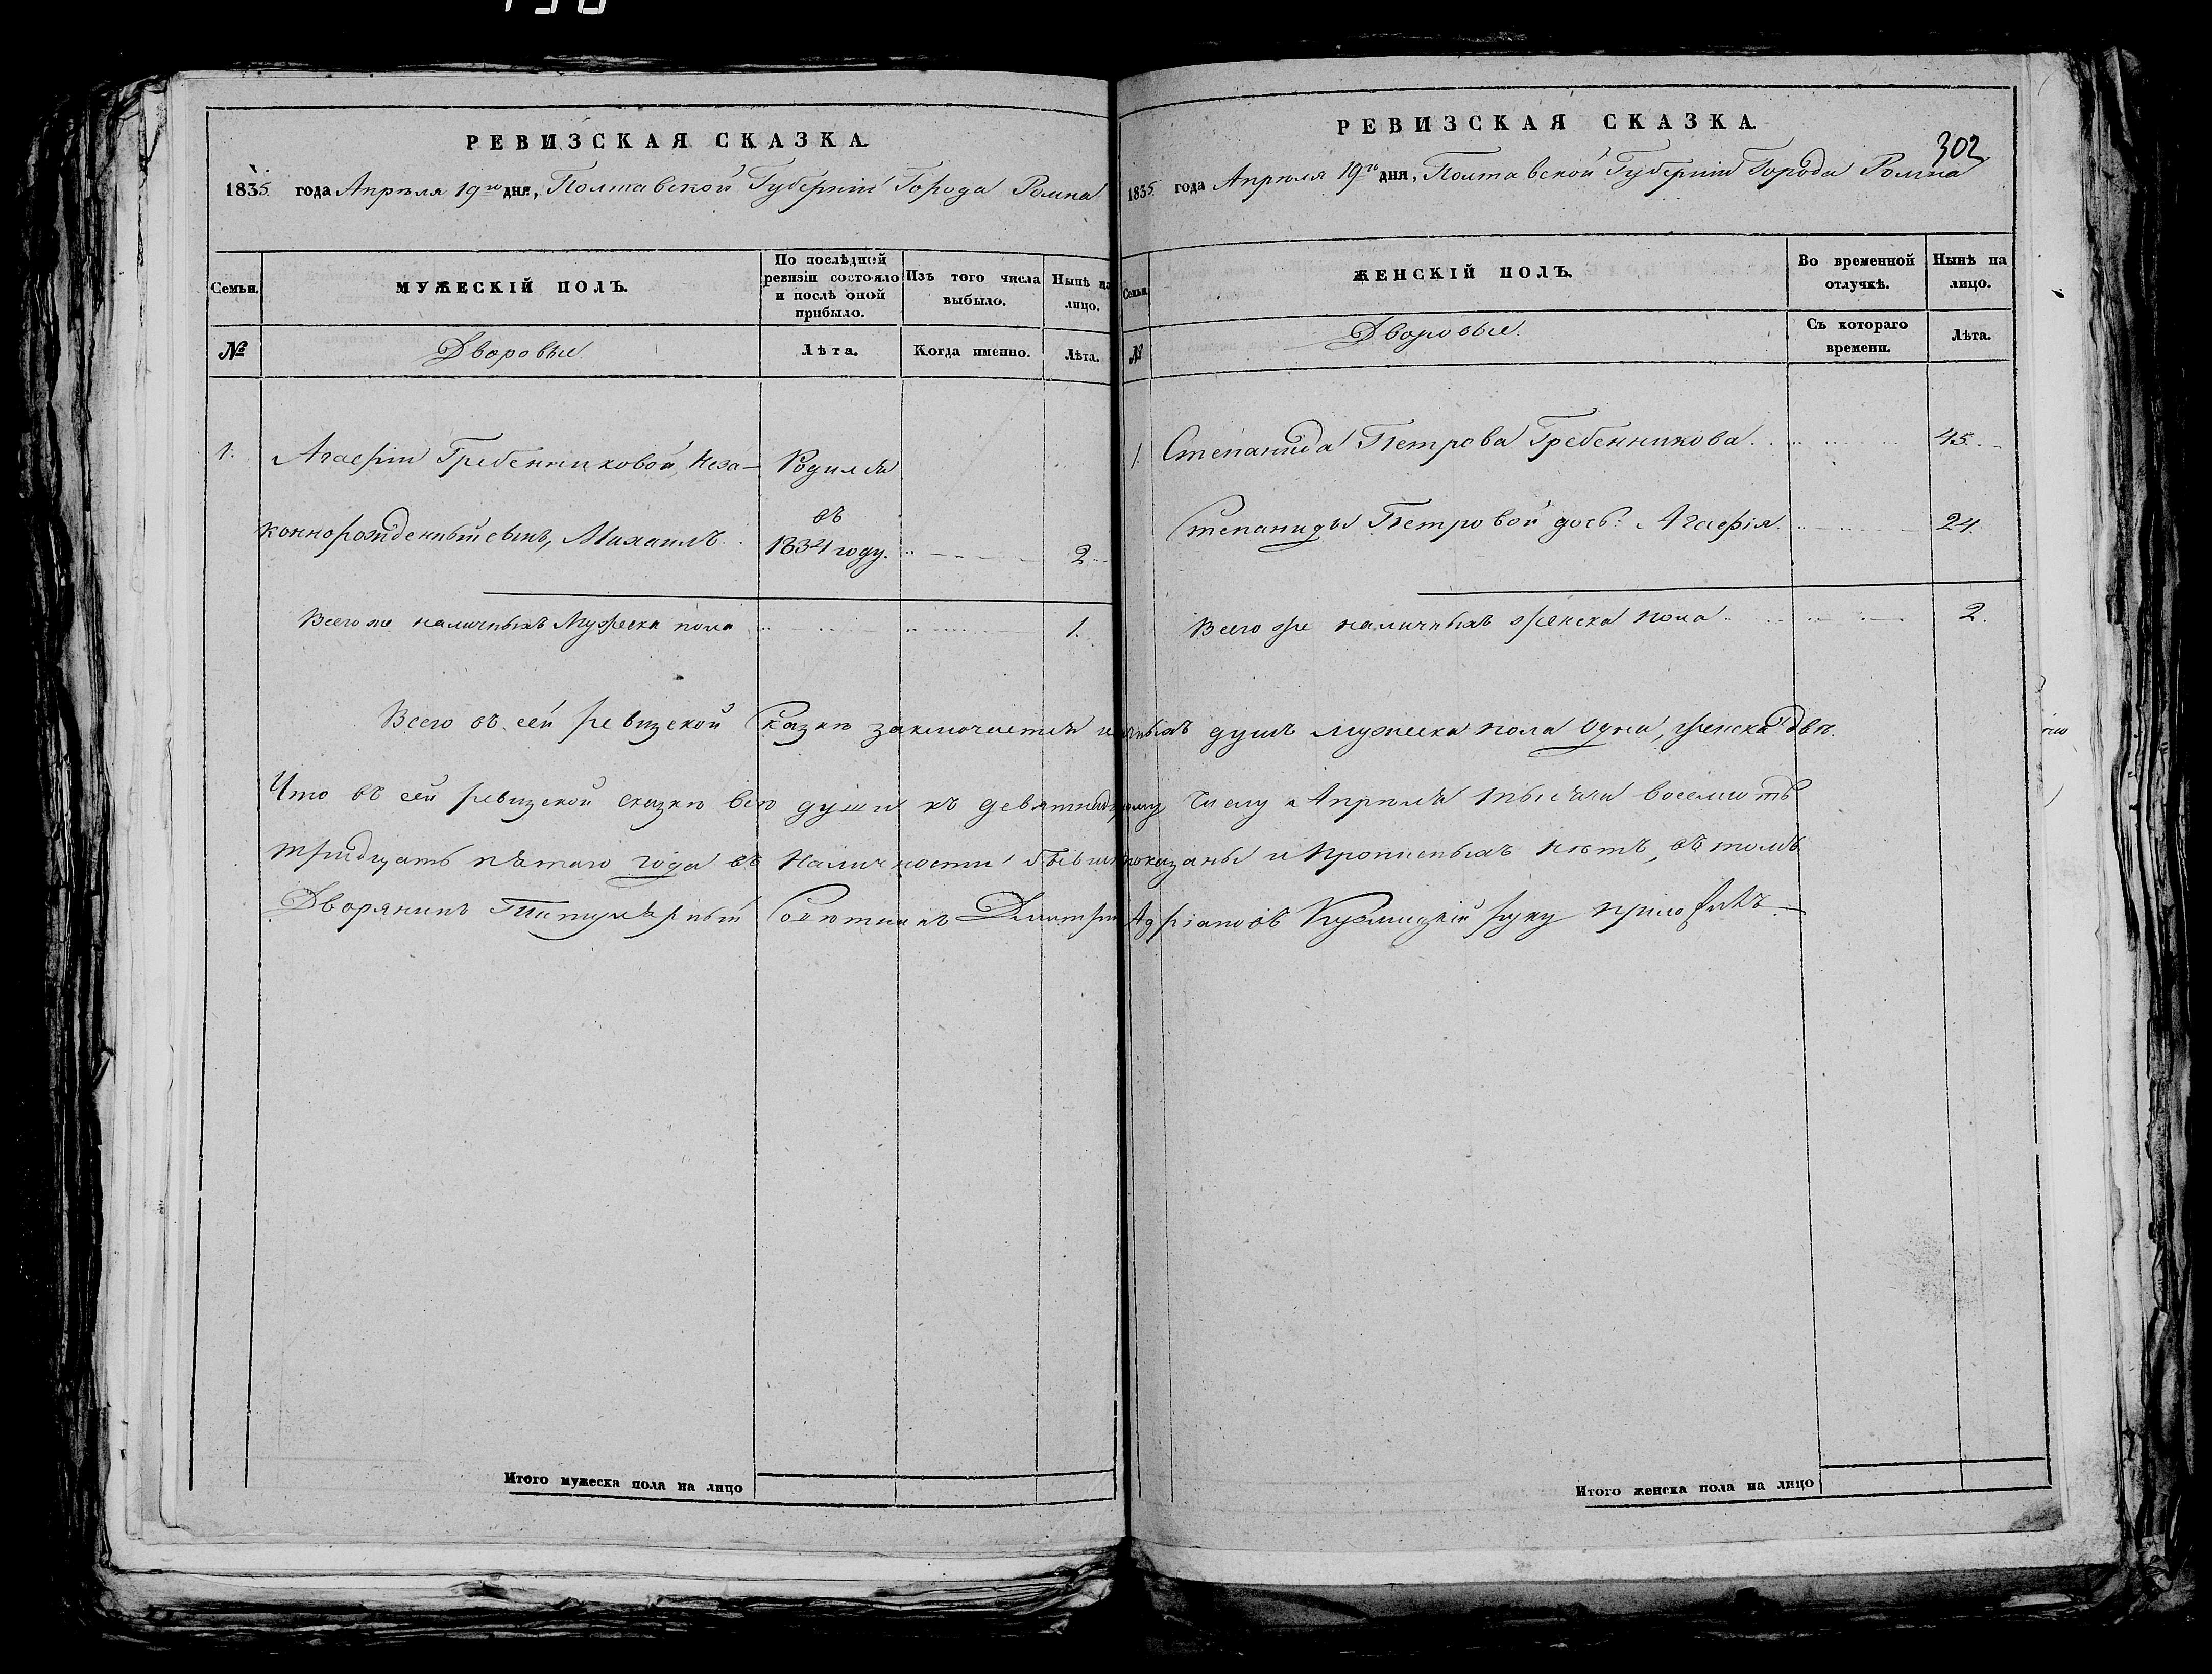 РЕВИЗСКАЯ СКАЗКА.
1835 года Апрѣля 19го дня, Полтавской Губерніи Города Ромна
Семьи.
МУЖЕСКІЙ ПОЛЪ.
По послѣдней
ревизіи состояло
и послѣ оной
прибыло.
Изъ того числа
выбыло.
Нынѣ на
лицо.
№
Дворовые.
Лѣта.
Когда именно.
Лѣта.
1. Агафіи Гребенниковой, Неза-
Родился
коннорожденный сынъ, Михаилъ.
въ
1834 году.
2
Всего же наличныхъ Мужеска пола
1.
РЕВИЗСКАЯ СКАЗКА.
302
1835 года Апрѣля 19го дня, Полтавской Губерніи Города Ромна
Семьи.
ЖЕНСКІЙ ПОЛЪ.
Во временной
отлучкѣ.
Нынѣ на
лицо.
№
Дворовые.
Съ котораго
времени.
Лѣта.
1. Степанида Петрова Гребенникова. 45.
Степаниды Петровой дочь: Агафія. 24.
Всего же наличныхъ женска пола 2.
Всего въ сей ревизской Сказкѣ заключается душъ мужеска пола Одна, женска двѣ.
Что въ сей ревизской сказкѣ всѣ души къ девятнадцатому Числу Апрѣля тысяча восемсотъ
тридцать пятаго года въ Наличности бывшія показаны и прописныхъ нѣтъ, въ томъ
Дворянинъ Титулярный Совѣтникъ Дмитрій Адріановъ руку приложилъ.
Итого мужеска пола на лицо
Итого женска пола на лицо